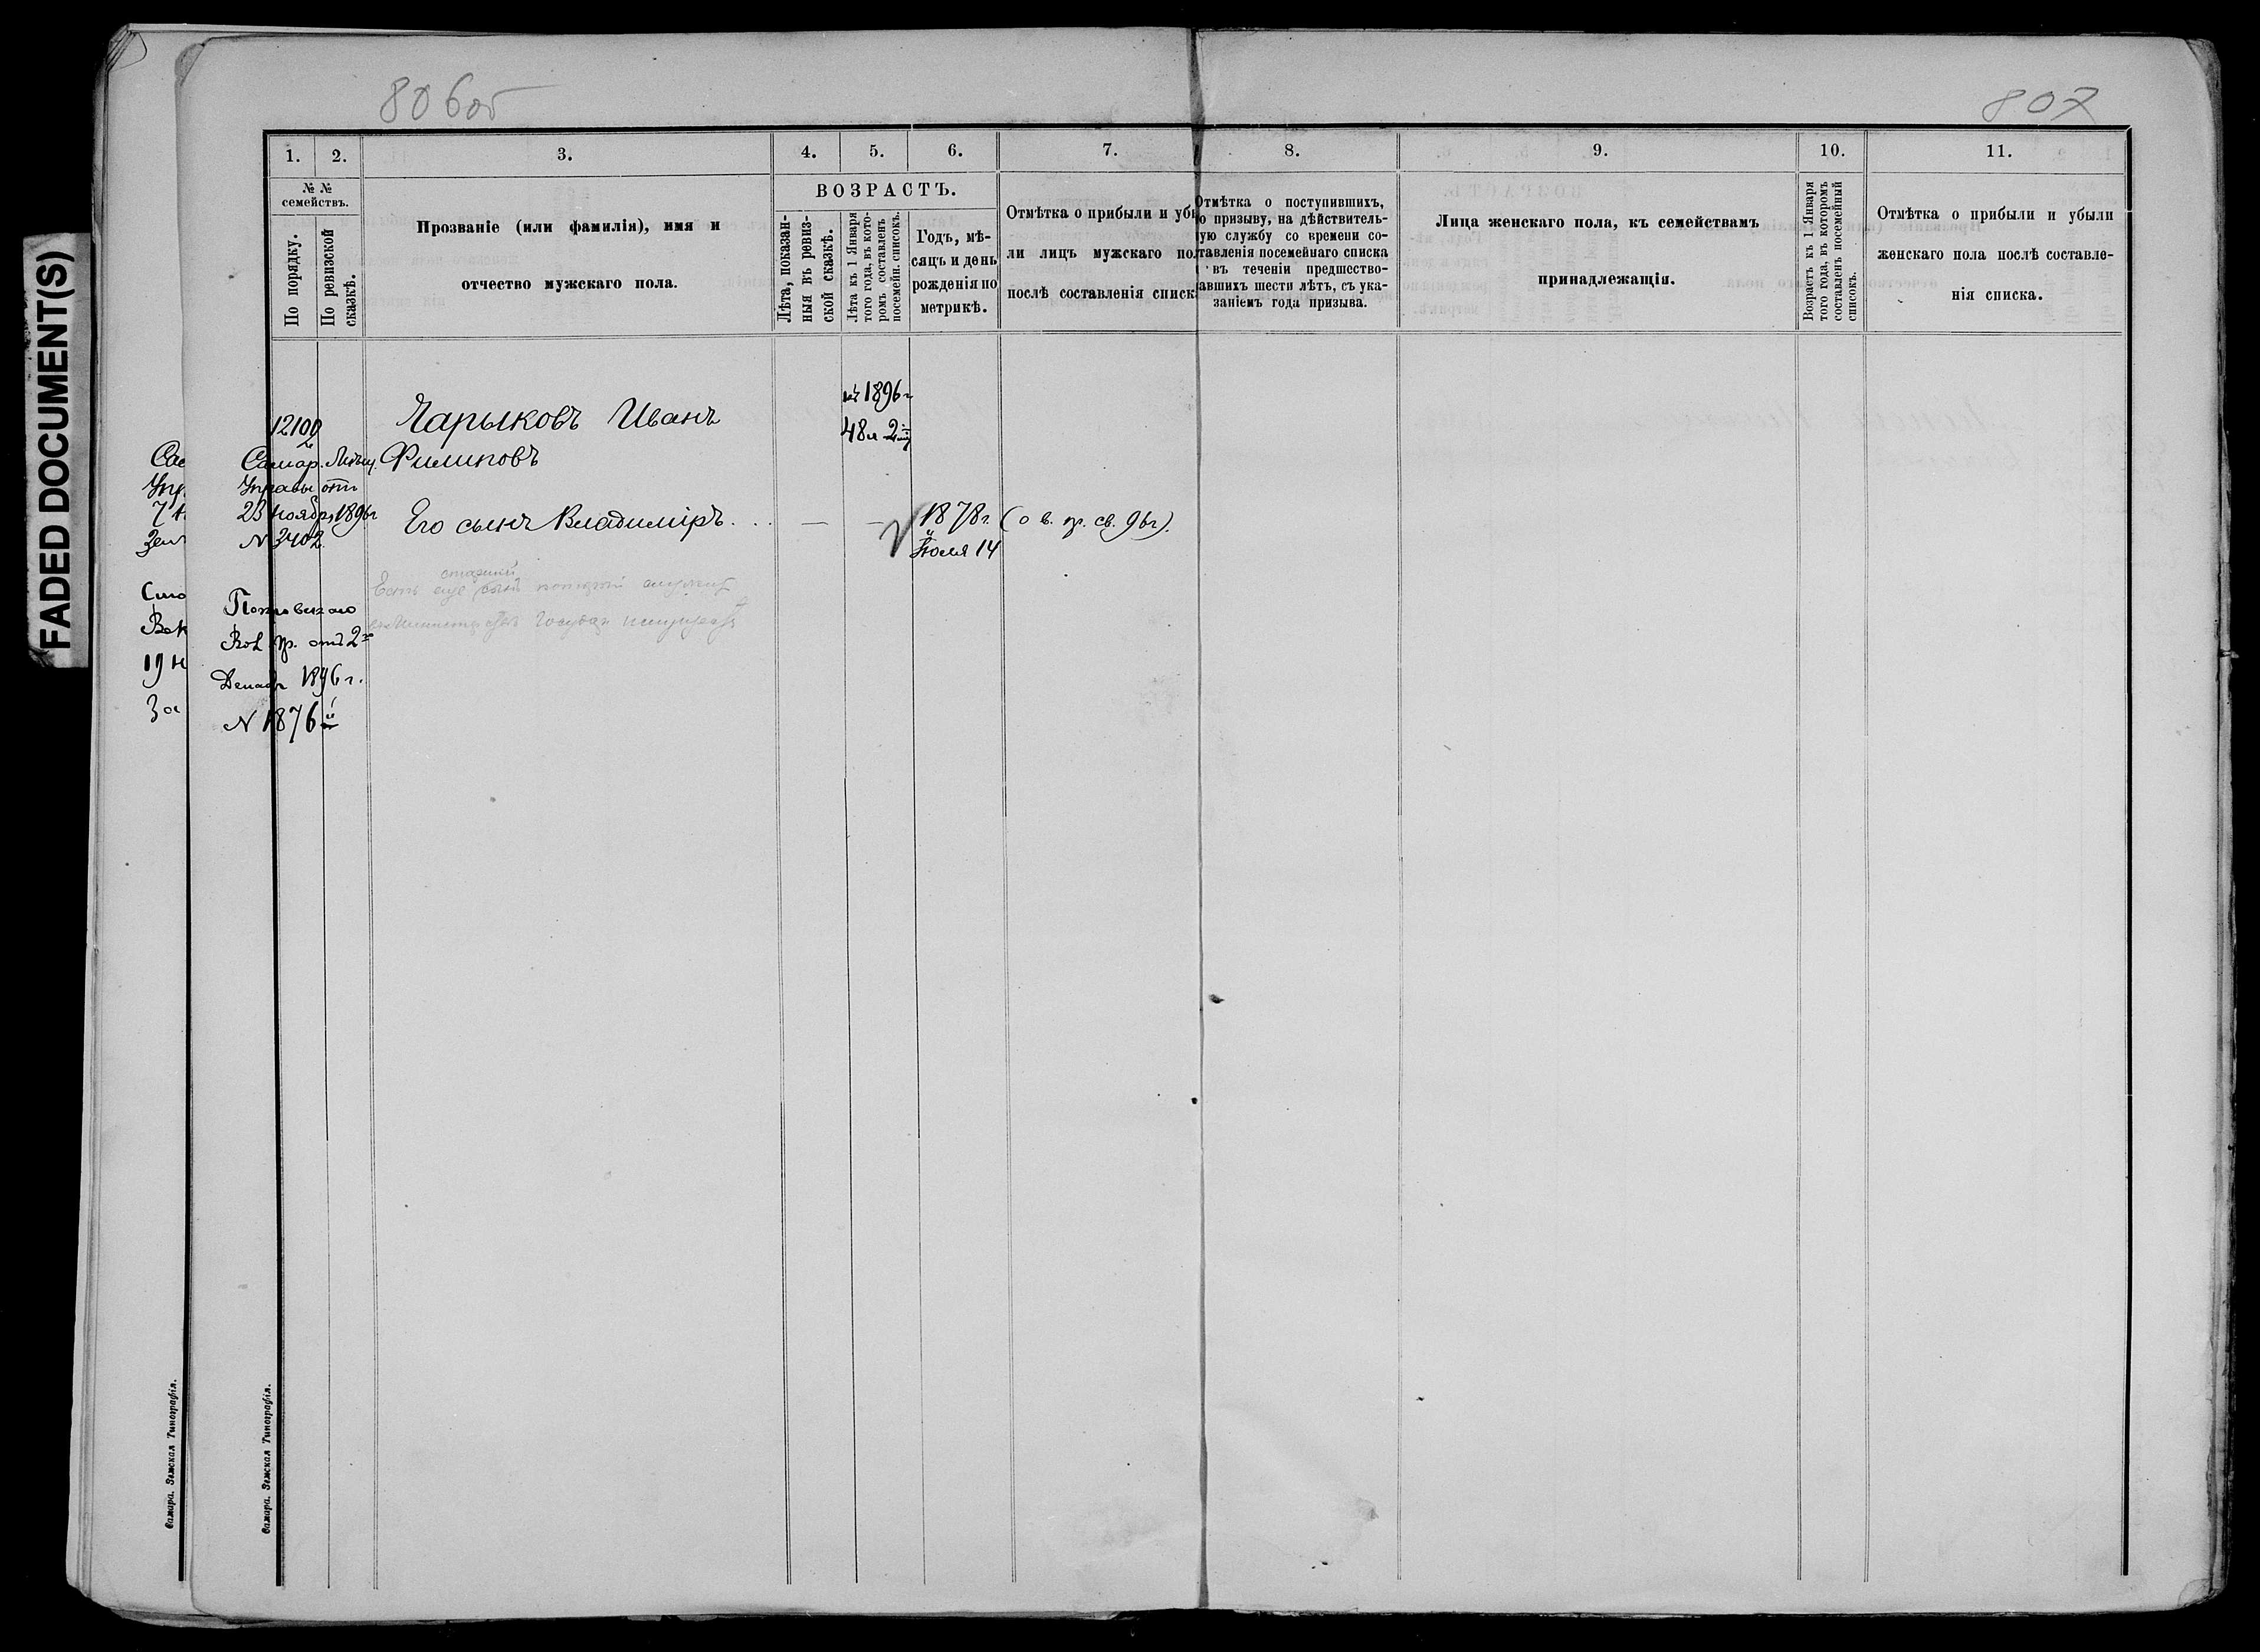 FADED DOCUMENT(S)
806об
807
1.
2.
3.
4.
5.
6.
7.
8.
9.
10.
11.
№ №
семействъ.
По порядку.
По ревизской
сказкѣ.
Прозваніе (или фамилія), имя и
отчество мужскаго пола.
ВОЗРАСТЪ.
Лѣта, показан-
ныя въ ревиз-
ской сказкѣ.
Лѣта къ 1 Января
того года, въ кото-
ромъ составленъ
посемейн. списокъ.
Годъ, мѣ-
сяцъ и день
рожденія по
метрикѣ.
Отмѣтка о прибыли и убы
ли лицъ мужскаго пол
послѣ составленія списк
Отмѣтка о поступившихъ,
о призыву, на дѣйствитель-
ую службу со времени со-
тавленія посемейнаго списка
въ теченіи предшество-
авшихъ шести лѣтъ, съ ука-
заніемъ года призыва.
Лица женскаго пола, къ семействамъ
принадлежащія.
Возрастъ къ 1 Января
того года, въ которомъ
составленъ посемейный
списокъ.
Отмѣтка о прибыли и убыли
женскаго пола послѣ составле-
нія списка.
1896г
12100
Чарыковъ Иванъ
48л 2
Самар. Мѣщ.
Филиповъ
Управы отъ
23 Ноябр. 1896г
N 3402
Его сынъ Владиміръ.
1878г.
Іюля 14
(о в. пр. св. 96г).
Есть еще старшій сынъ который служитъ
въ Министерствѣ Государ имуществъ
Покровскаго
Вол. пр. отъ 2го
Декабр 1896г.
N 1876
Самара. Земская Типографія.
Самара. Земская Типографія.